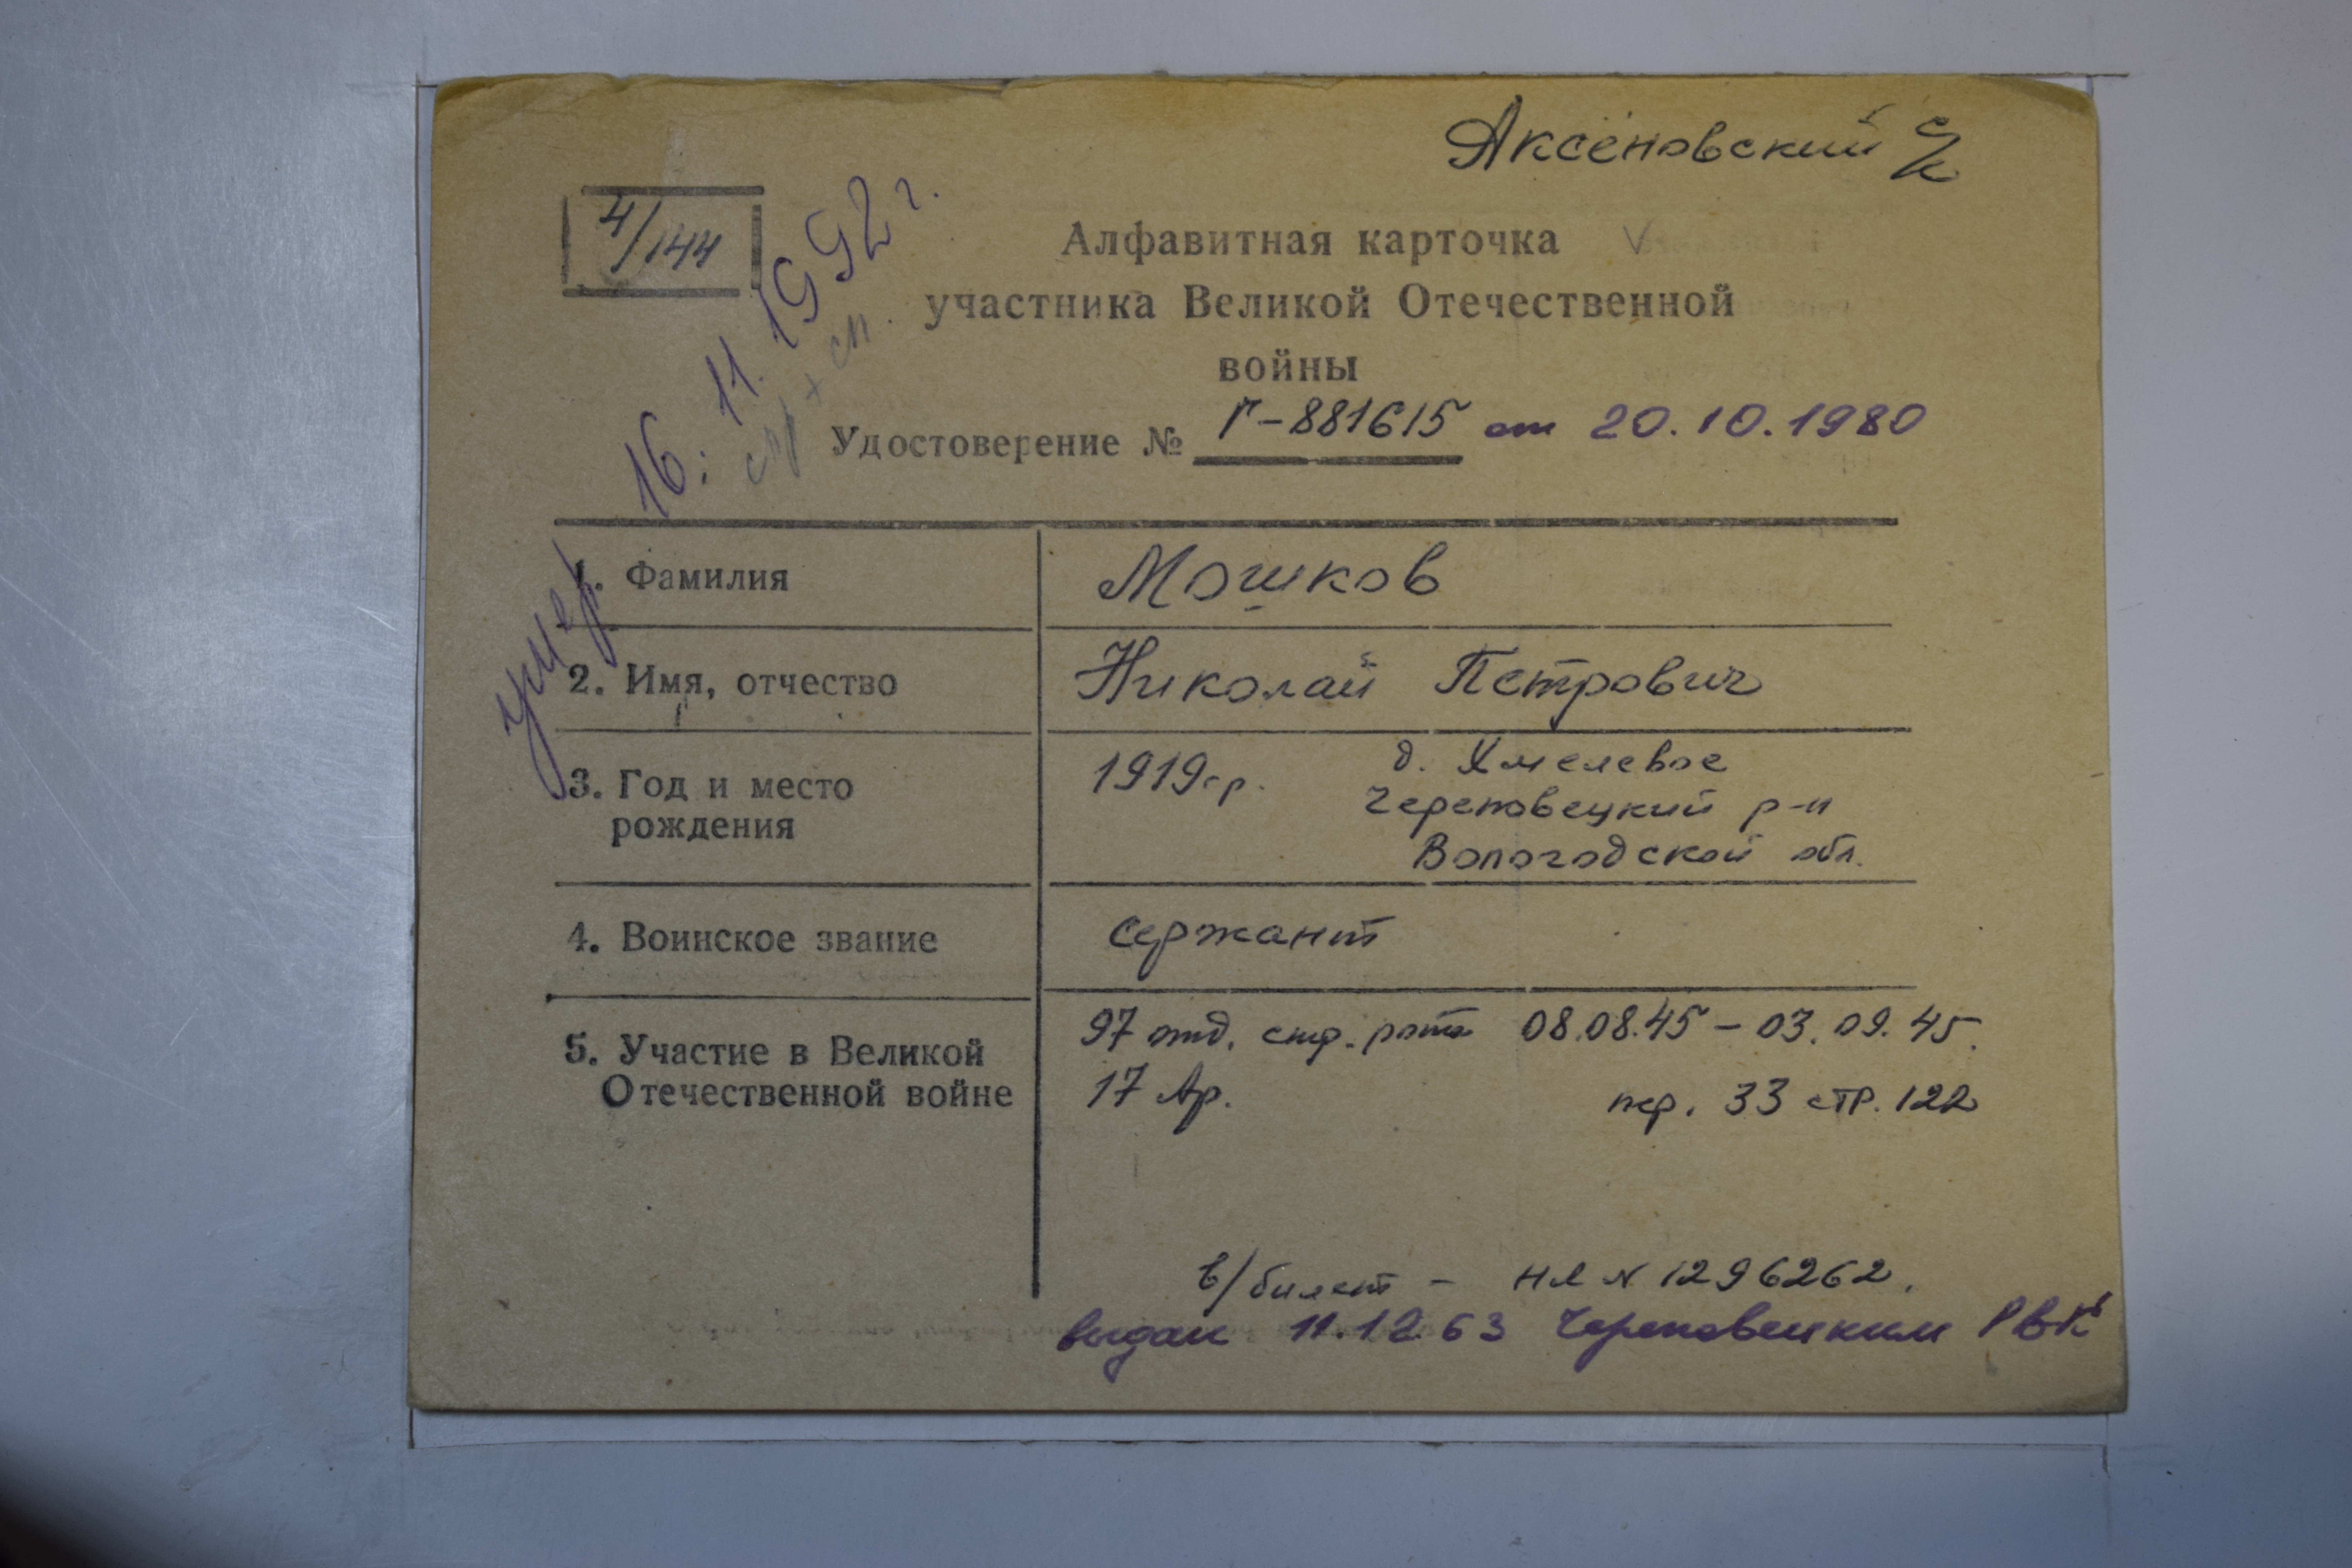 Аксеновский с/с
4/144
Алфавитная карточка
участника Великой Отечественной
войны
Удостоверение № Г-881615 от 20.10.1980
умер 16.11.1992 г.
1. Фамилия
Мошков
2. Имя, отчество
Николай Петрович
3. Год и место
рождения
1919 г.р. д. Хмелевое
Череповецкий р-н
Вологодской обл.
4. Воинское звание
сержант
5. Участие в Великой
Отечественной войне
97 отд. стр. рота 08.08.45 – 03.09.45.
17 Ар. пер. 33 стр. 122
в/билет – НЛ N 1296262.
выдан 11.12.63 Череповецким РВК